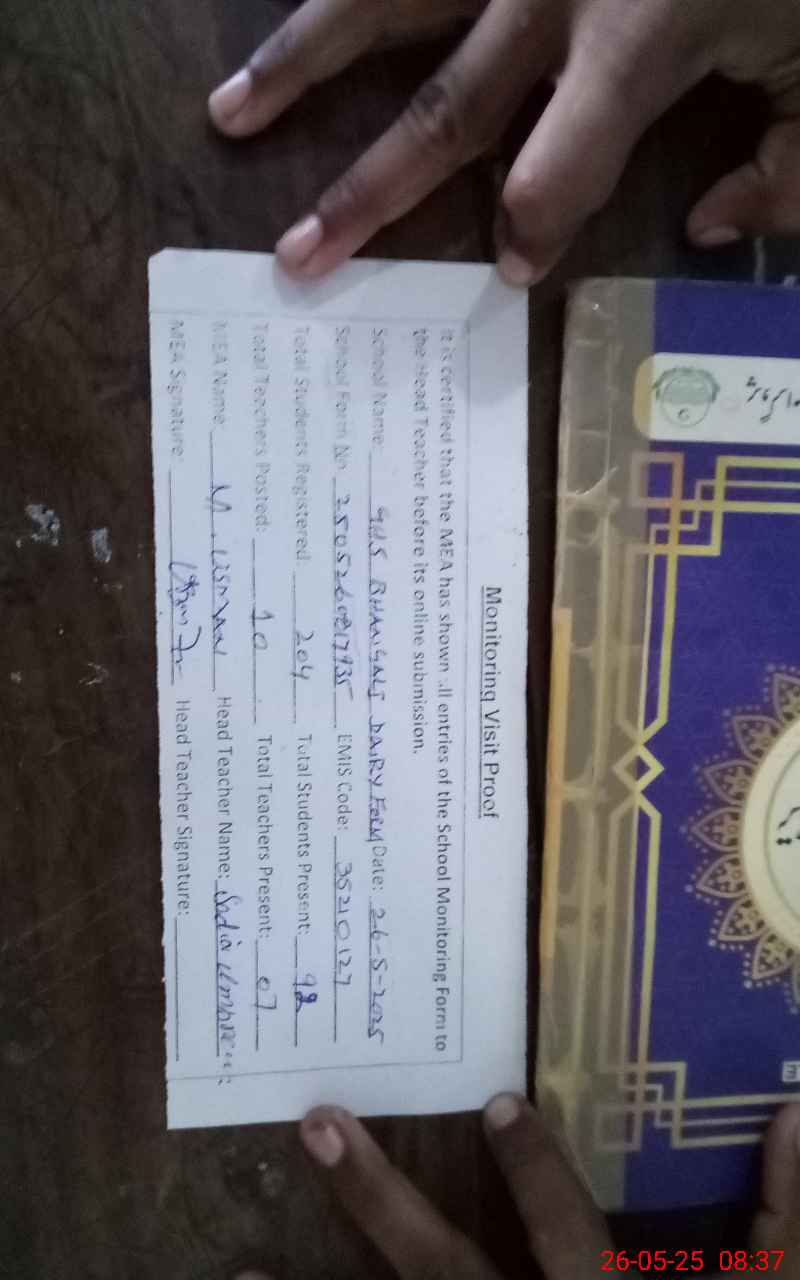 Monitoring Visit Proof
It is certified that the MEA has shown all entries of the School Monitoring Form to
the Head Teacher before its online submission.
School Name: GHS BHAINSALI DAIRY FORM Date: 26-5-2025
School Form No 2505260817935 EMIS Code: 35210127
Total Students Registered: 204 Total Students Present: 92
Total Teachers Posted: 10 Total Teachers Present: 07
MEA Name M. USMAN Head Teacher Name: Sadia
MEA Signature: Head Teacher Signature:
26-05-25 08:37